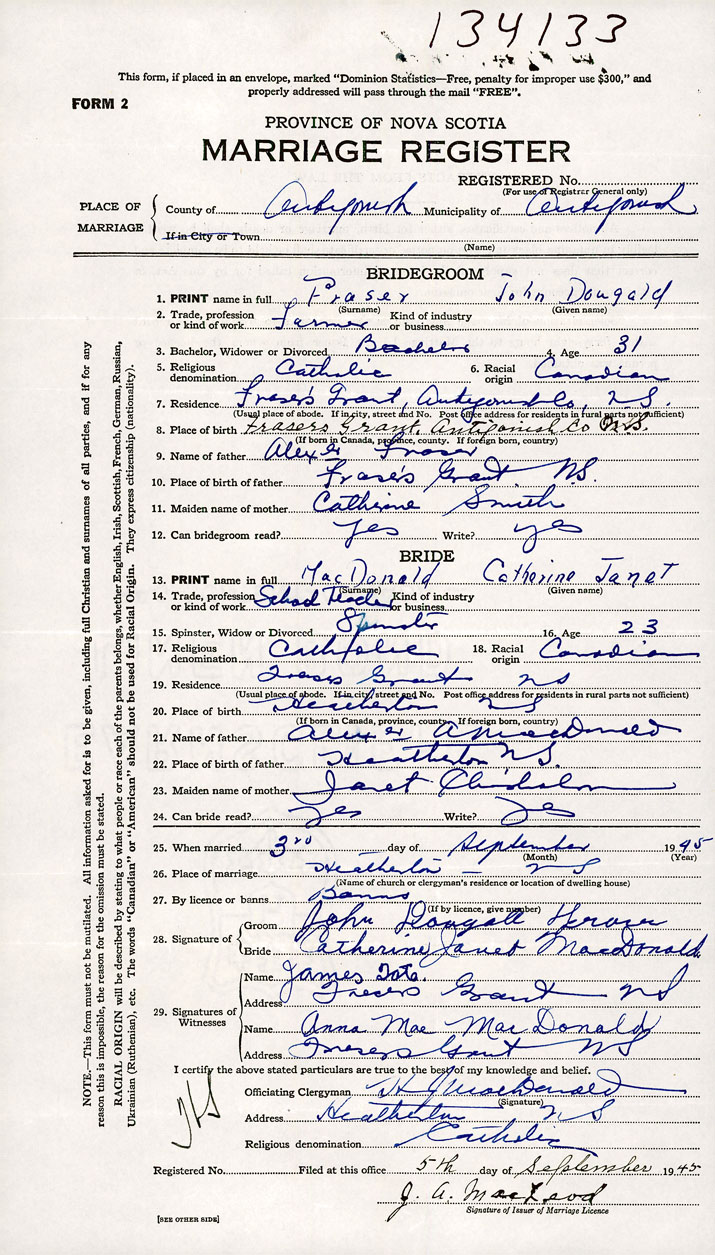 134133
This form, if placed in an envelope, marked "Dominion Statistics—Free, penalty for improper use $300," and
properly addressed will pass through the mail "FREE".
FORM 2
PROVINCE OF NOVA SCOTIA
MARRIAGE REGISTER
REGISTERED No.
(For use of Registrar General only)
PLACE OF MARRIAGE
County of Antigonish Municipality of Antigonish
If in City or Town
(Name)
BRIDEGROOM
1. PRINT name in full Fraser John Dougald
(Surname) (Given name)
2. Trade, profession or kind of work Farmer Kind of industry or business
3. Bachelor, Widower or Divorced Bachelor 4. Age 31
5. Religious denomination Catholic 6. Racial origin Canadian
7. Residence Fraser's Grant, Antigonish Co, N.S.
(Usual place of abode. If in city, street and No. Post office address for residents in rural parts not sufficient)
8. Place of birth Frasers Grant, Antigonish Co N.S.
(If born in Canada, province, county. If foreign born, country)
9. Name of father Alexr Fraser
10. Place of birth of father Fraser's Grant N.S.
11. Maiden name of mother Catherine Smith
12. Can bridegroom read? Yes Write? yes
BRIDE
13. PRINT name in full MacDonald Catherine Janet
(Surname) (Given name)
14. Trade, profession or kind of work School Teacher Kind of industry or business
15. Spinster, Widow or Divorced Spinster 16. Age 23
17. Religious denomination Catholic 18. Racial origin Canadian
19. Residence Frasers Grant NS
(Usual place of abode. If in city, street and No. Post office address for residents in rural parts not sufficient)
20. Place of birth Heatherton NS
(If born in Canada, province, county. If foreign born, country)
21. Name of father Alexr A MacDonald
22. Place of birth of father Heatherton N.S.
23. Maiden name of mother Janet Chisholm
24. Can bride read? Yes Write? Yes
25. When married 3rd day of September 1945
(Month) (Year)
26. Place of marriage Heatherton – NS
(Name of church or clergyman's residence or location of dwelling house)
27. By licence or banns Banns
(If by licence, give number)
28. Signature of
Groom John Dougall Fraser
Bride Catherine Janet MacDonald
29. Signatures of Witnesses
Name James
Address Frasers Grant NS
Name Anna Mae MacDonald
Address Frasers Grant NS
I certify the above stated particulars are true to the best of my knowledge and belief.
Officiating Clergyman MacDonald
(Signature)
Address Heatherton NS
Religious denomination Catholic
Registered No. Filed at this office 5th day of September 1945
J. A. MacLeod
Signature of Issuer of Marriage Licence
[SEE OTHER SIDE]
NOTE.—This form must not be mutilated. All information asked for is to be given, including full Christian and surnames of all parties, and if for any
reason this is impossible, the reason for the omission must be stated.
RACIAL ORIGIN will be described by stating to what people or race each of the parents belongs, whether English, Irish, Scottish, French, German, Russian,
Ukrainian (Ruthenian), etc. The words "Canadian" or "American" should not be used for Racial Origin. They express citizenship (nationality).